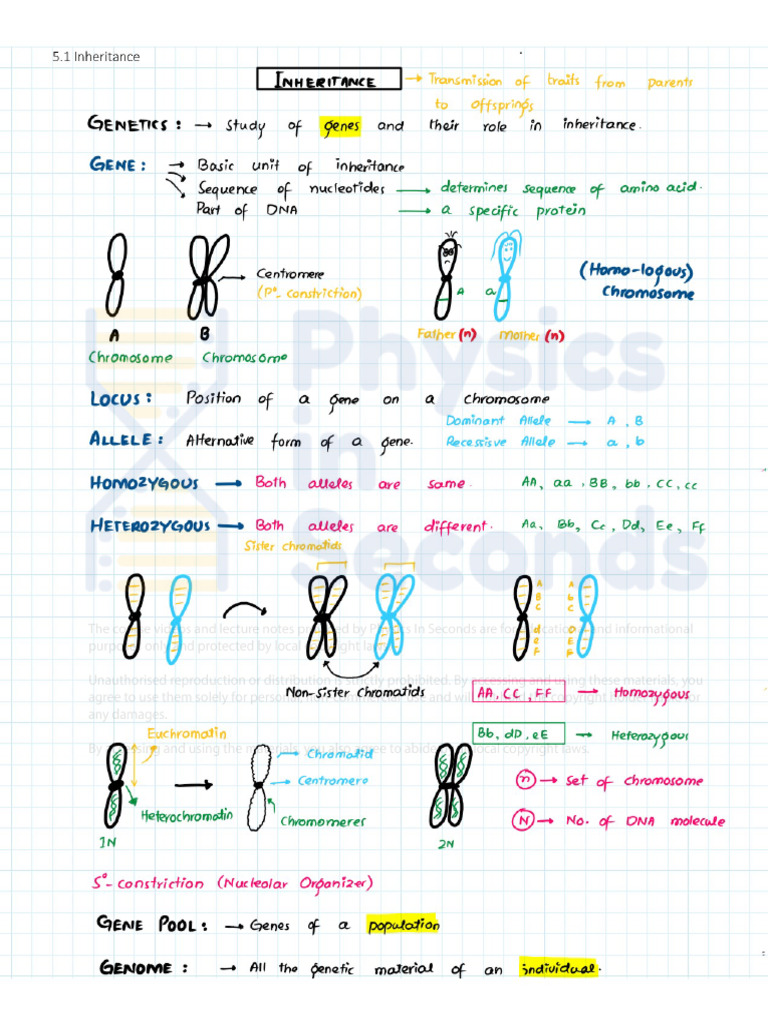 5.1 Inheritance
INHERITANCE → Transmission of traits from parents
to offsprings
GENETICS : → Study of genes and their role in inheritance.
GENE : → Basic unit of inheritance
Sequence of nucleotides → determines sequence of amino acid.
Part of DNA → a specific protein
Centromere
(P°- constriction)
A a
(Homo-logous)
Chromosome
A B
Father (n) Mother (n)
Chromosome Chromosome
LOCUS : Position of a gene on a chromosome
Dominant Allele → A, B
ALLELE : Alternative form of a gene.
Recessive Allele → a, b
HOMOZYGOUS → Both alleles are same. AA, aa, BB, bb, CC, cc
HETEROZYGOUS → Both alleles are different. Aa, Bb, Cc, Dd, Ee, Ff
Sister chromatids
A A
B b
C C
d D
e E
F F
Non-Sister Chromatids
AA, CC, FF → Homozygous
Bb, dD, eE → Heterozygous
Euchromatin
Chromatid
Centromere
Heterochromatin
Chromomeres
1N
2N
n → Set of chromosome
N → No. of DNA molecule
S°- constriction (Nucleolar Organizer)
GENE POOL : → Genes of a population
GENOME : → All the genetic material of an individual.
Physics
in
Seconds
The course videos and lecture notes provided by Physics In Seconds are for educational and informational
purposes only and protected by local copyright laws.
Unauthorised reproduction or distribution is strictly prohibited. By accessing and using these materials, you
agree to use them solely for personal
any damages.
By accessing and using the materials, you also agree to abide local copyright laws.